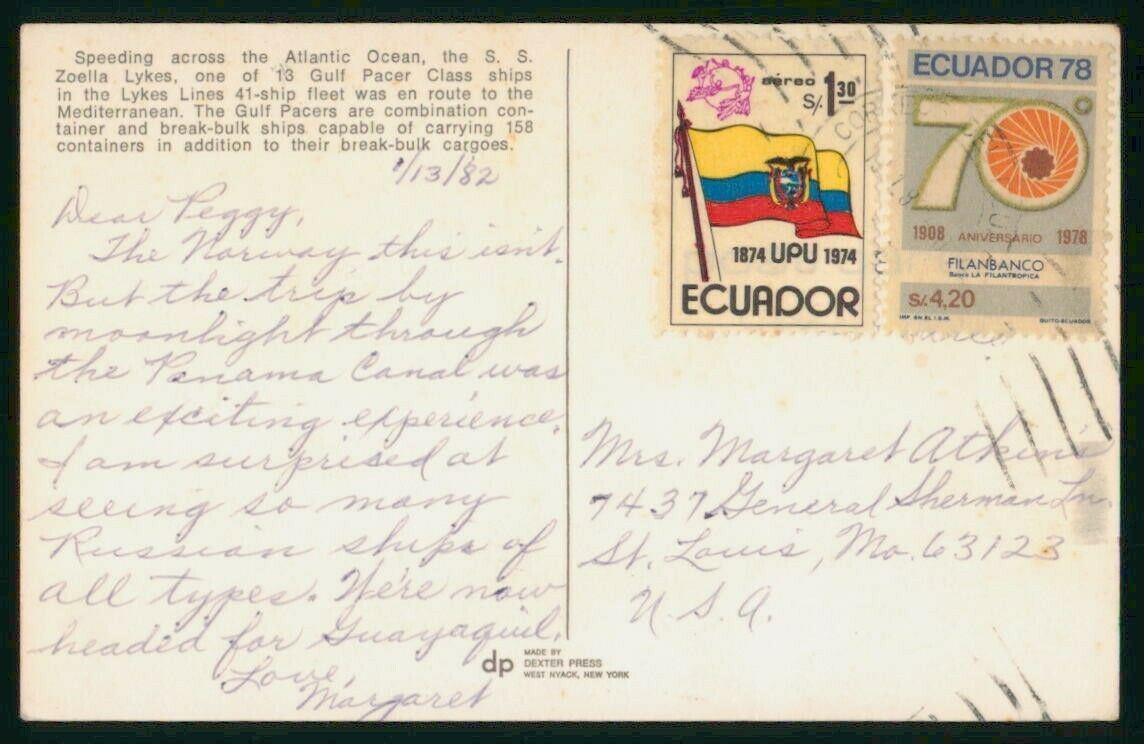 Speeding across the Atlantic Ocean, the S. S.
Zoella Lykes, one of 13 Gulf Pacer Class ships
in the Lykes Lines 41-ship fleet was en route to the
Mediterranean. The Gulf Pacers are combination con-
tainer and break-bulk ships capable of carrying 158
containers in addition to their break-bulk cargoes.
1/13/82
Dear Peggy,
The Norway this isn't.
But the trip by
moonlight through
the Panama Canal was
an exciting experience.
I am surprised at
seeing so many
Russian ships of
all types. We're now
headed for Guayaquil.
Love,
Margaret
dp
MADE BY
DEXTER PRESS
WEST NYACK, NEW YORK
aéreo
S/. 1.30
1874 UPU 1974
ECUADOR
ECUADOR 78
70°
1908 ANIVERSARIO 1978
FILANBANCO
Banco LA FILANTROPICA
S/. 4,20
IMP. EN EL I.G.M. QUITO-ECUADOR
Mrs. Margaret Atkins
7437 General Sherman Ln.
St. Louis, Mo. 63123
U. S. A.